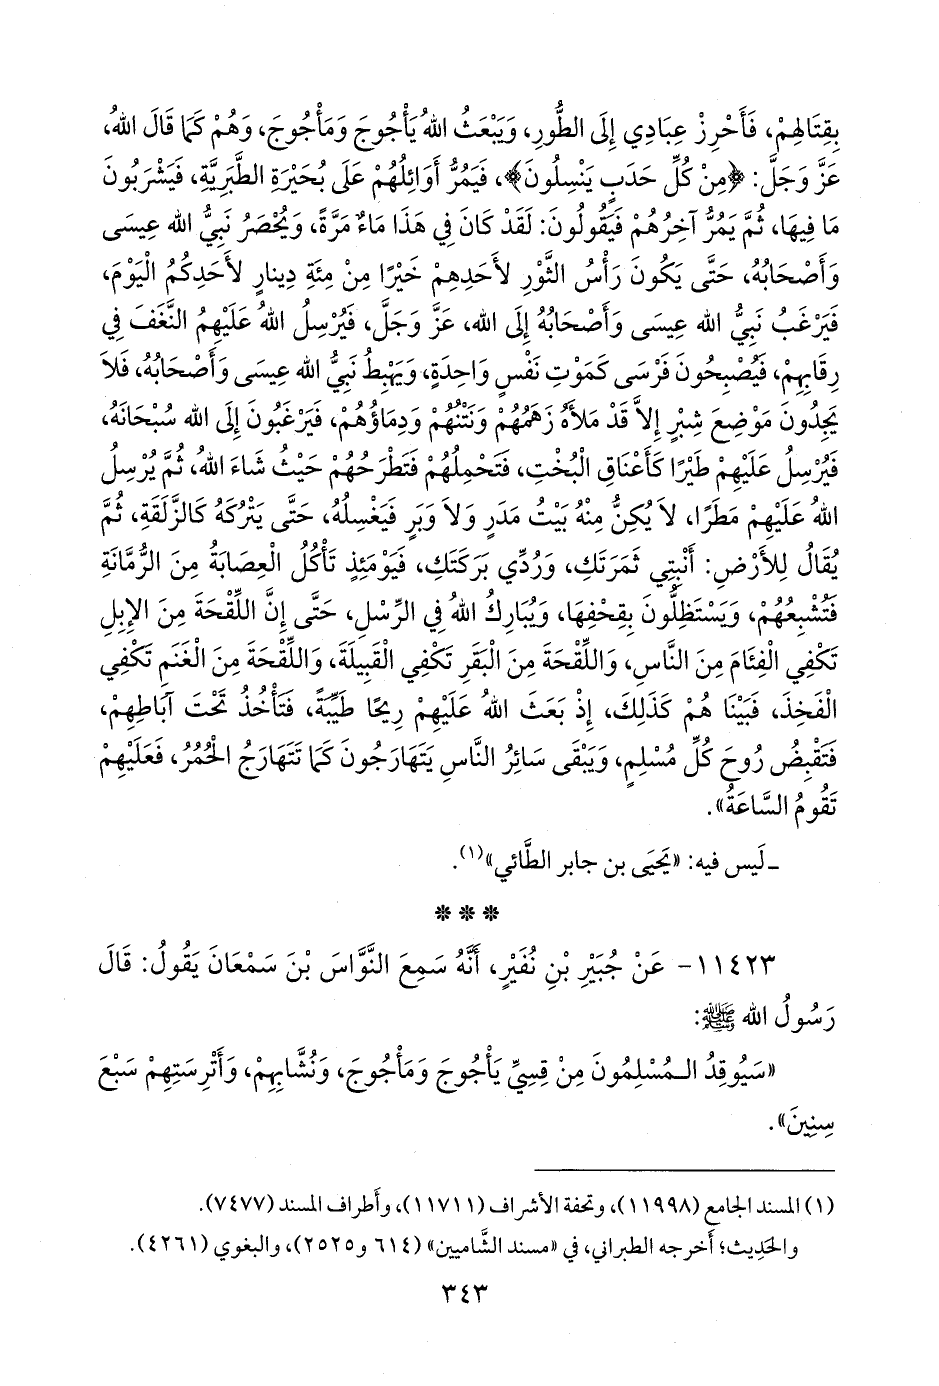 بِقِتَالِهِمْ، فَأَحْرِزْ عِبَادِي إِلَى الطُّورِ، وَيَبْعَثُ اللهُ يَأْجُوجَ وَمَأْجُوجَ، وَهُمْ كَمَا قَالَ اللهُ،
عَزَّ وَجَلَّ: ﴿مِنْ كُلِّ حَدَبٍ يَنْسِلُونَ﴾، فَيَمُرُّ أَوَائِلُهُمْ عَلَى بُحَيْرَةِ الطَّبَرِيَّةِ، فَيَشْرَبُونَ
مَا فِيهَا، ثُمَّ يَمُرُّ آخِرُهُمْ فَيَقُولُونَ: لَقَدْ كَانَ فِي هَذَا مَاءٌ مَرَّةً، وَيُحْصَرُ نَبِيُّ الله عِيسَى
وَأَصْحَابُهُ، حَتَّى يَكُونَ رَأْسُ الثَّوْرِ لأَحَدِهِمْ خَيْرًا مِنْ مِئَةِ دِينارٍ لأَحَدِكُمُ الْيَوْمَ،
فَيَرْغَبُ نَبِيُّ الله عِيسَى وَأَصْحَابُهُ إِلَى الله، عَزَّ وَجَلَّ، فَيُرْسِلُ اللهُ عَلَيْهِمُ النَّغَفَ فِي
رِقَابِهِمْ، فَيُصْبِحُونَ فَرْسَى كَمَوْتِ نَفْسٍ وَاحِدَةٍ، وَيَهْبِطُ نَبِيُّ الله عِيسَى وَأَصْحَابُهُ، فَلاَ
يَجِدُونَ مَوْضِعَ شِبْرٍ إِلاَّ قَدْ مَلأَهُ زَهَمُهُمْ وَنَتْنُهُمْ وَدِمَاؤُهُمْ، فَيَرْغَبُونَ إِلَى الله سُبْحَانَهُ،
فَيُرْسِلُ عَلَيْهِمْ طَيْرًا كَأَعْنَاقِ الْبُخْتِ، فَتَحْمِلُهُمْ فَتَطْرَحُهُمْ حَيْثُ شَاءَ اللهُ، ثُمَّ يُرْسِلُ
اللهُ عَلَيْهِمْ مَطَرًا، لاَ يُكِنُّ مِنْهُ بَيْتُ مَدَرٍ وَلاَ وَبَرٍ فَيَغْسِلُهُ، حَتَّى يَتْرُكَهُ كَالزَّلَقَةِ، ثُمَّ
يُقَالُ لِلأَرْضِ: أَنْبِتِي ثَمَرَتَكِ، وَرُدِّي بَرَكَتَكِ، فَيَوْمَئِذٍ تَأْكُلُ الْعِصَابَةُ مِنَ الرُّمَّانَةِ
فَتُشْبِعُهُمْ، وَيَسْتَظِلُّونَ بِقِحْفِهَا، وَيُبَارِكُ اللهُ فِي الرِّسْلِ، حَتَّى إِنَّ اللِّقْحَةَ مِنَ الإِبِلِ
تَكْفِي الْفِئَامَ مِنَ النَّاسِ، وَاللِّقْحَةَ مِنَ الْبَقَرِ تَكْفِي الْقَبِيلَةَ، وَاللِّقْحَةَ مِنَ الْغَنَمِ تَكْفِي
الْفَخِذَ، فَبَيْنَا هُمْ كَذَلِكَ، إِذْ بَعَثَ اللهُ عَلَيْهِمْ رِيحًا طَيِّبَةً، فَتَأْخُذُ تَحْتَ آبَاطِهِمْ،
فَتَقْبِضُ رُوحَ كُلِّ مُسْلِمٍ، وَيَبْقَى سَائِرُ النَّاسِ يَتَهَارَجُونَ كَمَا تَتَهَارَجُ الْحُمُرُ، فَعَلَيْهِمْ
تَقُومُ السَّاعَةُ».
ـ لَيس فيه: «يَحيَى بن جابر الطَّائي»(١).
* * *
١١٤٢٣- عَنْ جُبَيْرِ بْنِ نُفَيْرٍ، أَنَّهُ سَمِعَ النَّوَّاسَ بْنَ سَمْعَانَ يَقُولُ: قَالَ
رَسُولُ الله ﷺ:
«سَيُوقِدُ الْمُسْلِمُونَ مِنْ قِسِيِّ يَأْجُوجَ وَمَأْجُوجَ، وَنُشَّابِهِمْ، وَأَتْرِسَتِهِمْ سَبْعَ
سِنِينَ».
(١) المسند الجامع (١١٩٩٨)، وتحفة الأشراف (١١٧١١)، وأَطراف المسند (٧٤٧٧).
والحَدِيث؛ أَخرجه الطبراني، في «مسند الشَّاميين» (٦١٤ و٢٥٢٥)، والبغوي (٤٢٦١).
٣٤٣